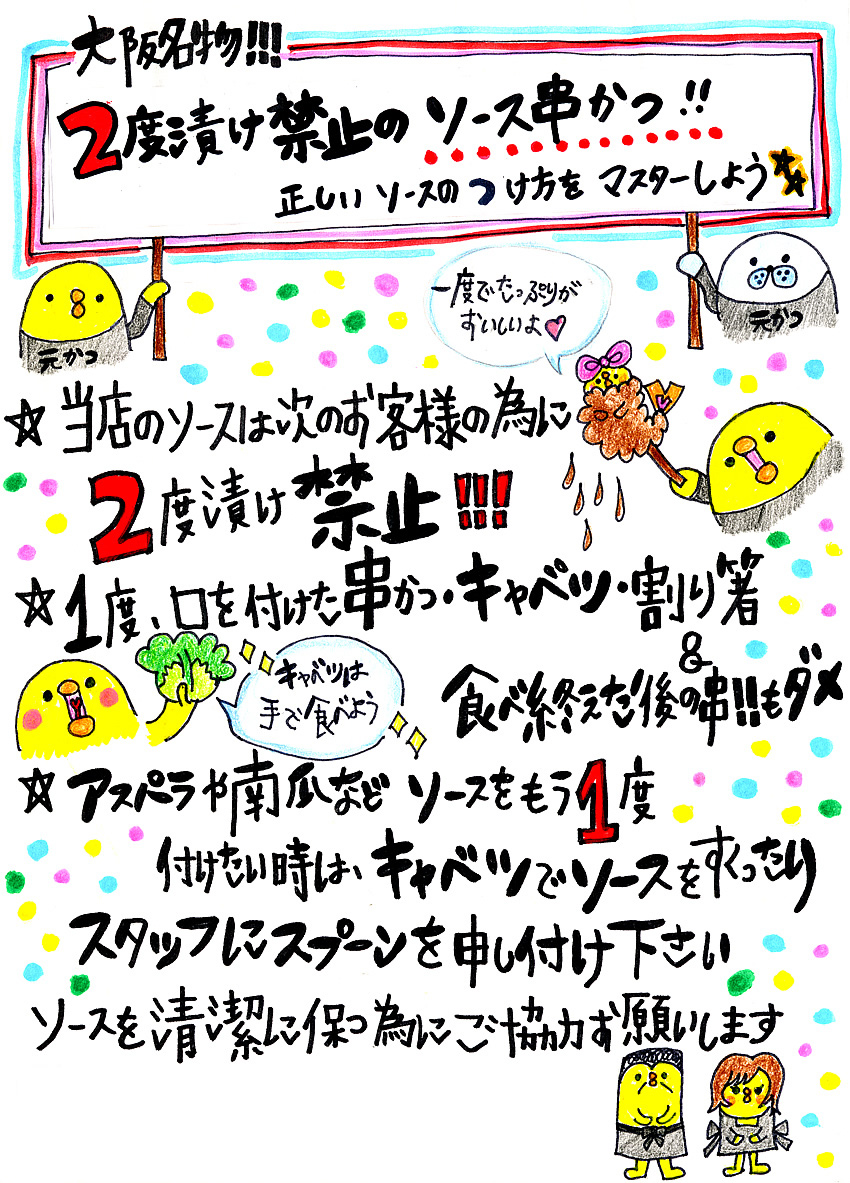 大阪名物!!!
2度漬け禁止のソース串かつ!!
正しいソースのつけ方をマスターしよう
元かつ
元かつ
一度でたっぷりが
おいしいよ♥
☆当店のソースは次のお客様の為に
2度漬け禁止!!!
☆1度、口を付けた串かつ・キャベツ・割り箸
&
食べ終えた後の串!!もダメ
キャベツは
手で食べよう
☆アスパラや南瓜など ソースをもう1度
付けたい時は、キャベツでソースをすくったり
スタッフにスプーンを申し付け下さい
ソースを清潔に保つ為にご協力お願いします